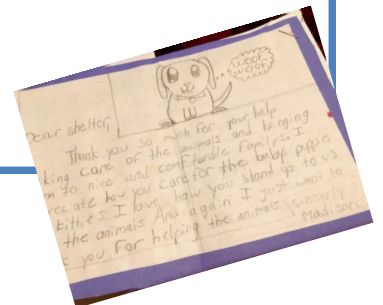 woof
woof!
Dear shelter,
Thank you so much for your help
king care of the animals and bringing
m to nice and comfterble familys. I
rec ate how you care for the baby puppies
kitties I love how you stand up to us
the animals And again I just want to
e you For helping the animals sincerly
Madison